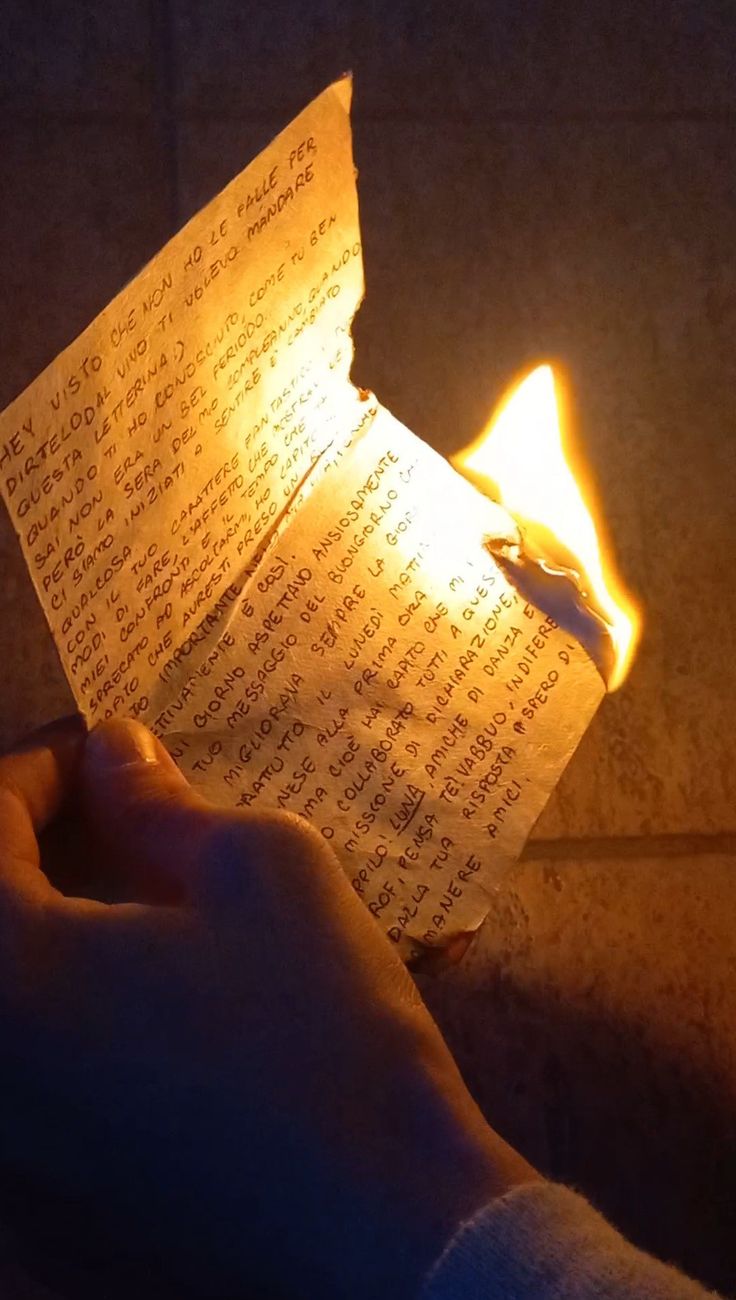 HEY VISTO CHE NON HO LE PALLE PER
DIRTELO DAL VIVO TI VOLEVO MANDARE
QUESTA LETTERINA :)
QUANDO TI HO CONOSCIUTO, COME TU BEN
SAI NON ERA UN BEL PERIODO.
PERÒ LA SERA DEL MIO COMPLEANNO, QUANDO
CI SIAMO INIZIATI A SENTIRE È CAMBIATO
QUALCOSA.
CON IL TUO CARATTERE FANTASTICO
MODI DI FARE, L'AFFETTO CHE MOSTRAVI
MIEI CONFRONTI E IL TEMPO CHE
SPRECATO AD ASCOLTARMI, HO CAPITO
CAPITO CHE AVRESTI PRESO UN
DO IMPORTANTE
ETTIVAMENTE È COSÌ.
NI GIORNO ASPETTAVO ANSIOSAMENTE
TUO MESSAGGIO DEL BUONGIORNO
MIGLIORAVA SEMPRE LA GIOR
RATTUTTO IL LUNEDÌ MATTI
NESE ALLA PRIMA ORA
MA CIOÈ HA CAPITO CHE MI
O COLLABORATO TUTTI A QUES
MISSIONE DI DICHIARAZIONE,
PPILO; LUNA, AMICHE DI DANZA E
ROF, PENSA TE! VABBUO, INDIFERE
DALLA TUA RISPOSTA SPERO DI
MANERE AMICI.